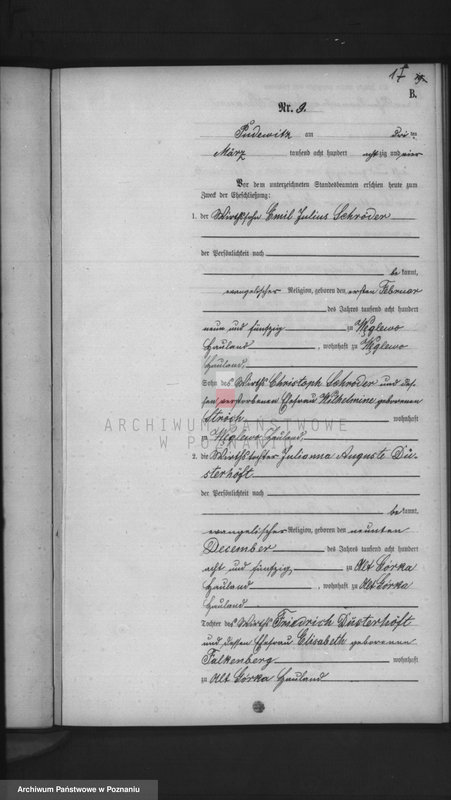 17
B.
Nr. 9.
Pudewitz am Dri ten
März tausend acht hundert achtzig und vier
Vor dem unterzeichneten Standesbeamten erschien heute zum
Zweck der Eheschließung:
1. der Wirthssohn Emil Julius Schröder
der Persönlichkeit nach
be kannt,
evangelischer Religion, geboren den ersten Februar
des Jahres tausend acht hundert
neun und fünfzig zu Węglewo
Hauland, wohnhaft zu Węglewo
Hauland,
Sohn des Wirths Christoph Schröder und des-
sen verstorbenen Ehefrau Wilhelmine geborenen
Stroch wohnhaft
zu Węglewo Hauland
ARCHIWUM PAŃSTWOWE
W POZNANIU
2. die Wirthstochter Julianna Auguste Dü-
sterhöft
der Persönlichkeit nach
be kannt,
evangelischer Religion, geboren den neunten
December des Jahres tausend acht hundert
acht und fünfzig, zu Alt Gorka
Hauland, wohnhaft zu Alt Gorka
Hauland
Tochter des Wirths Friedrich Düsterhöft
und dessen Ehefrau Elisabeth geborenen
Falkenberg wohnhaft
zu Alt Gorka Hauland
Archiwum Państwowe w Poznaniu